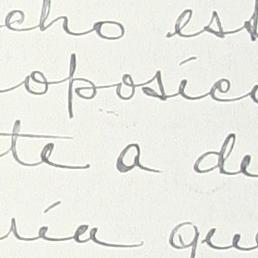 cho est
oposíci
te a de
ría que